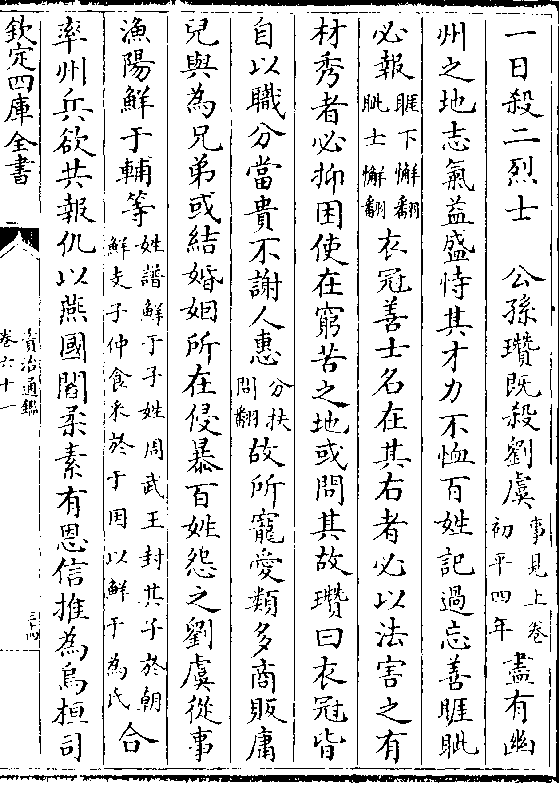 一日殺二烈士　公孫瓚既殺劉虞事見上卷初平四年盡有幽
州之地志氣益盛恃其才力不恤百姓記過忘善睚眦
必報睚下懈翻眦士懈翻衣冠善士名在其右者必以法害之有
材秀者必抑困使在窮苦之地或問其故瓚曰衣冠皆
自以職分當貴不謝人惠分扶問翻故所寵愛類多商販庸
兒與為兄弟或結婚姻所在侵暴百姓怨之劉虞從事
漁陽鮮于輔等姓譜鮮于子姓周武王封其子於朝鮮支子仲食采於于因以鮮于為氏合
率州兵欲共報仇以燕國閻柔素有恩信推為烏桓司
欽定四庫全書
資治通鑑
卷六十一